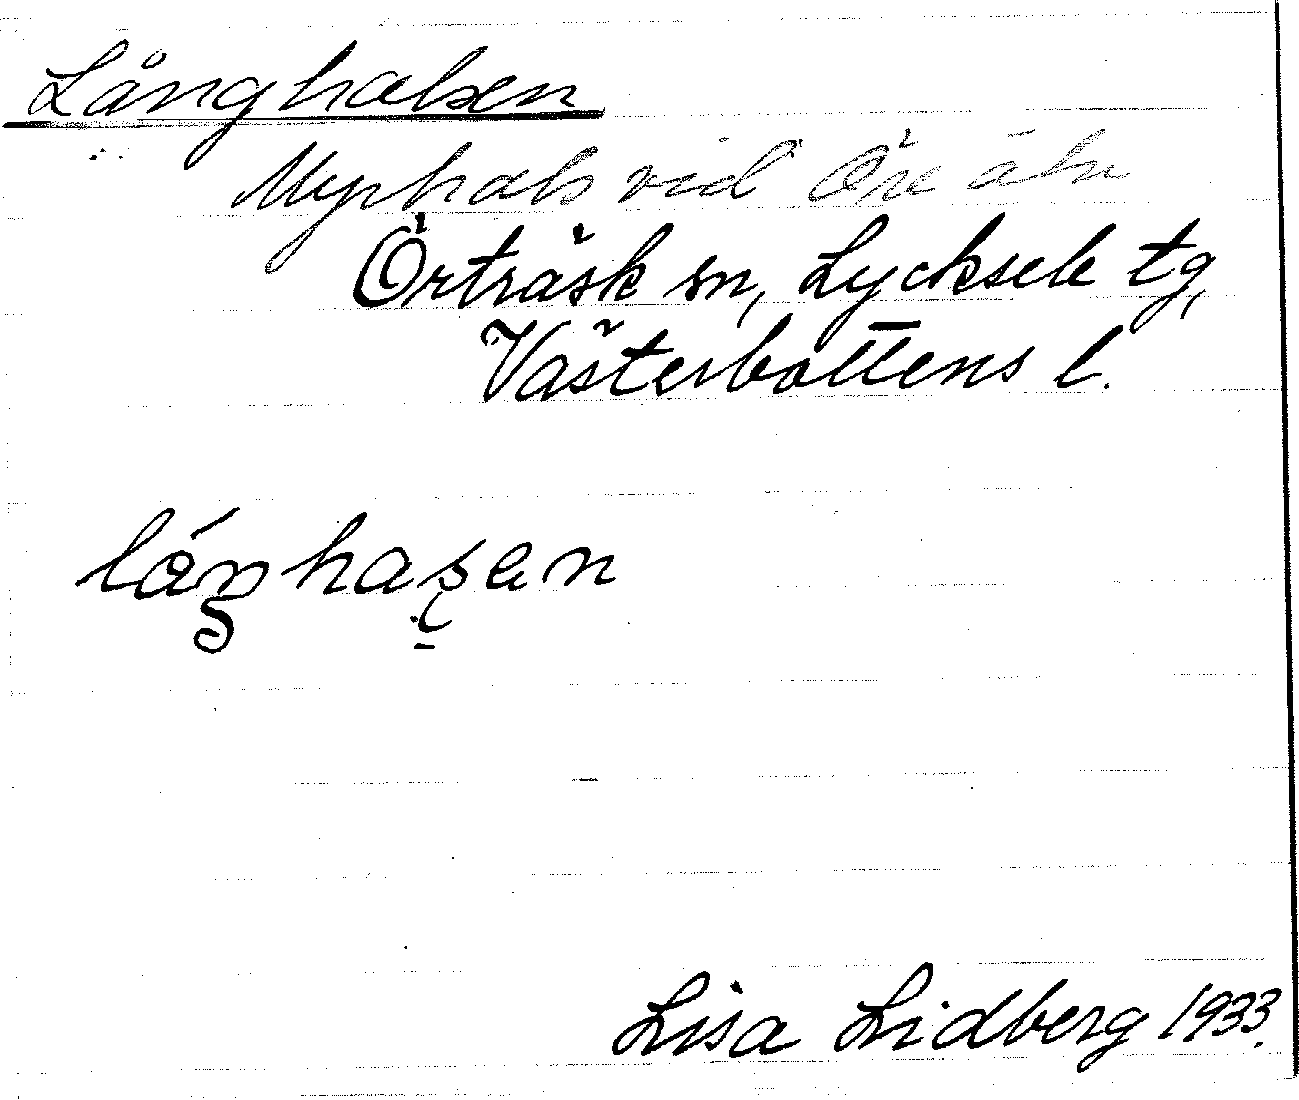 Långhalsen
Myrhals vid Öre älv
Örträsk sn, Lycksele tg,
Västerbottens l.
Lisa Lidberg 1933.